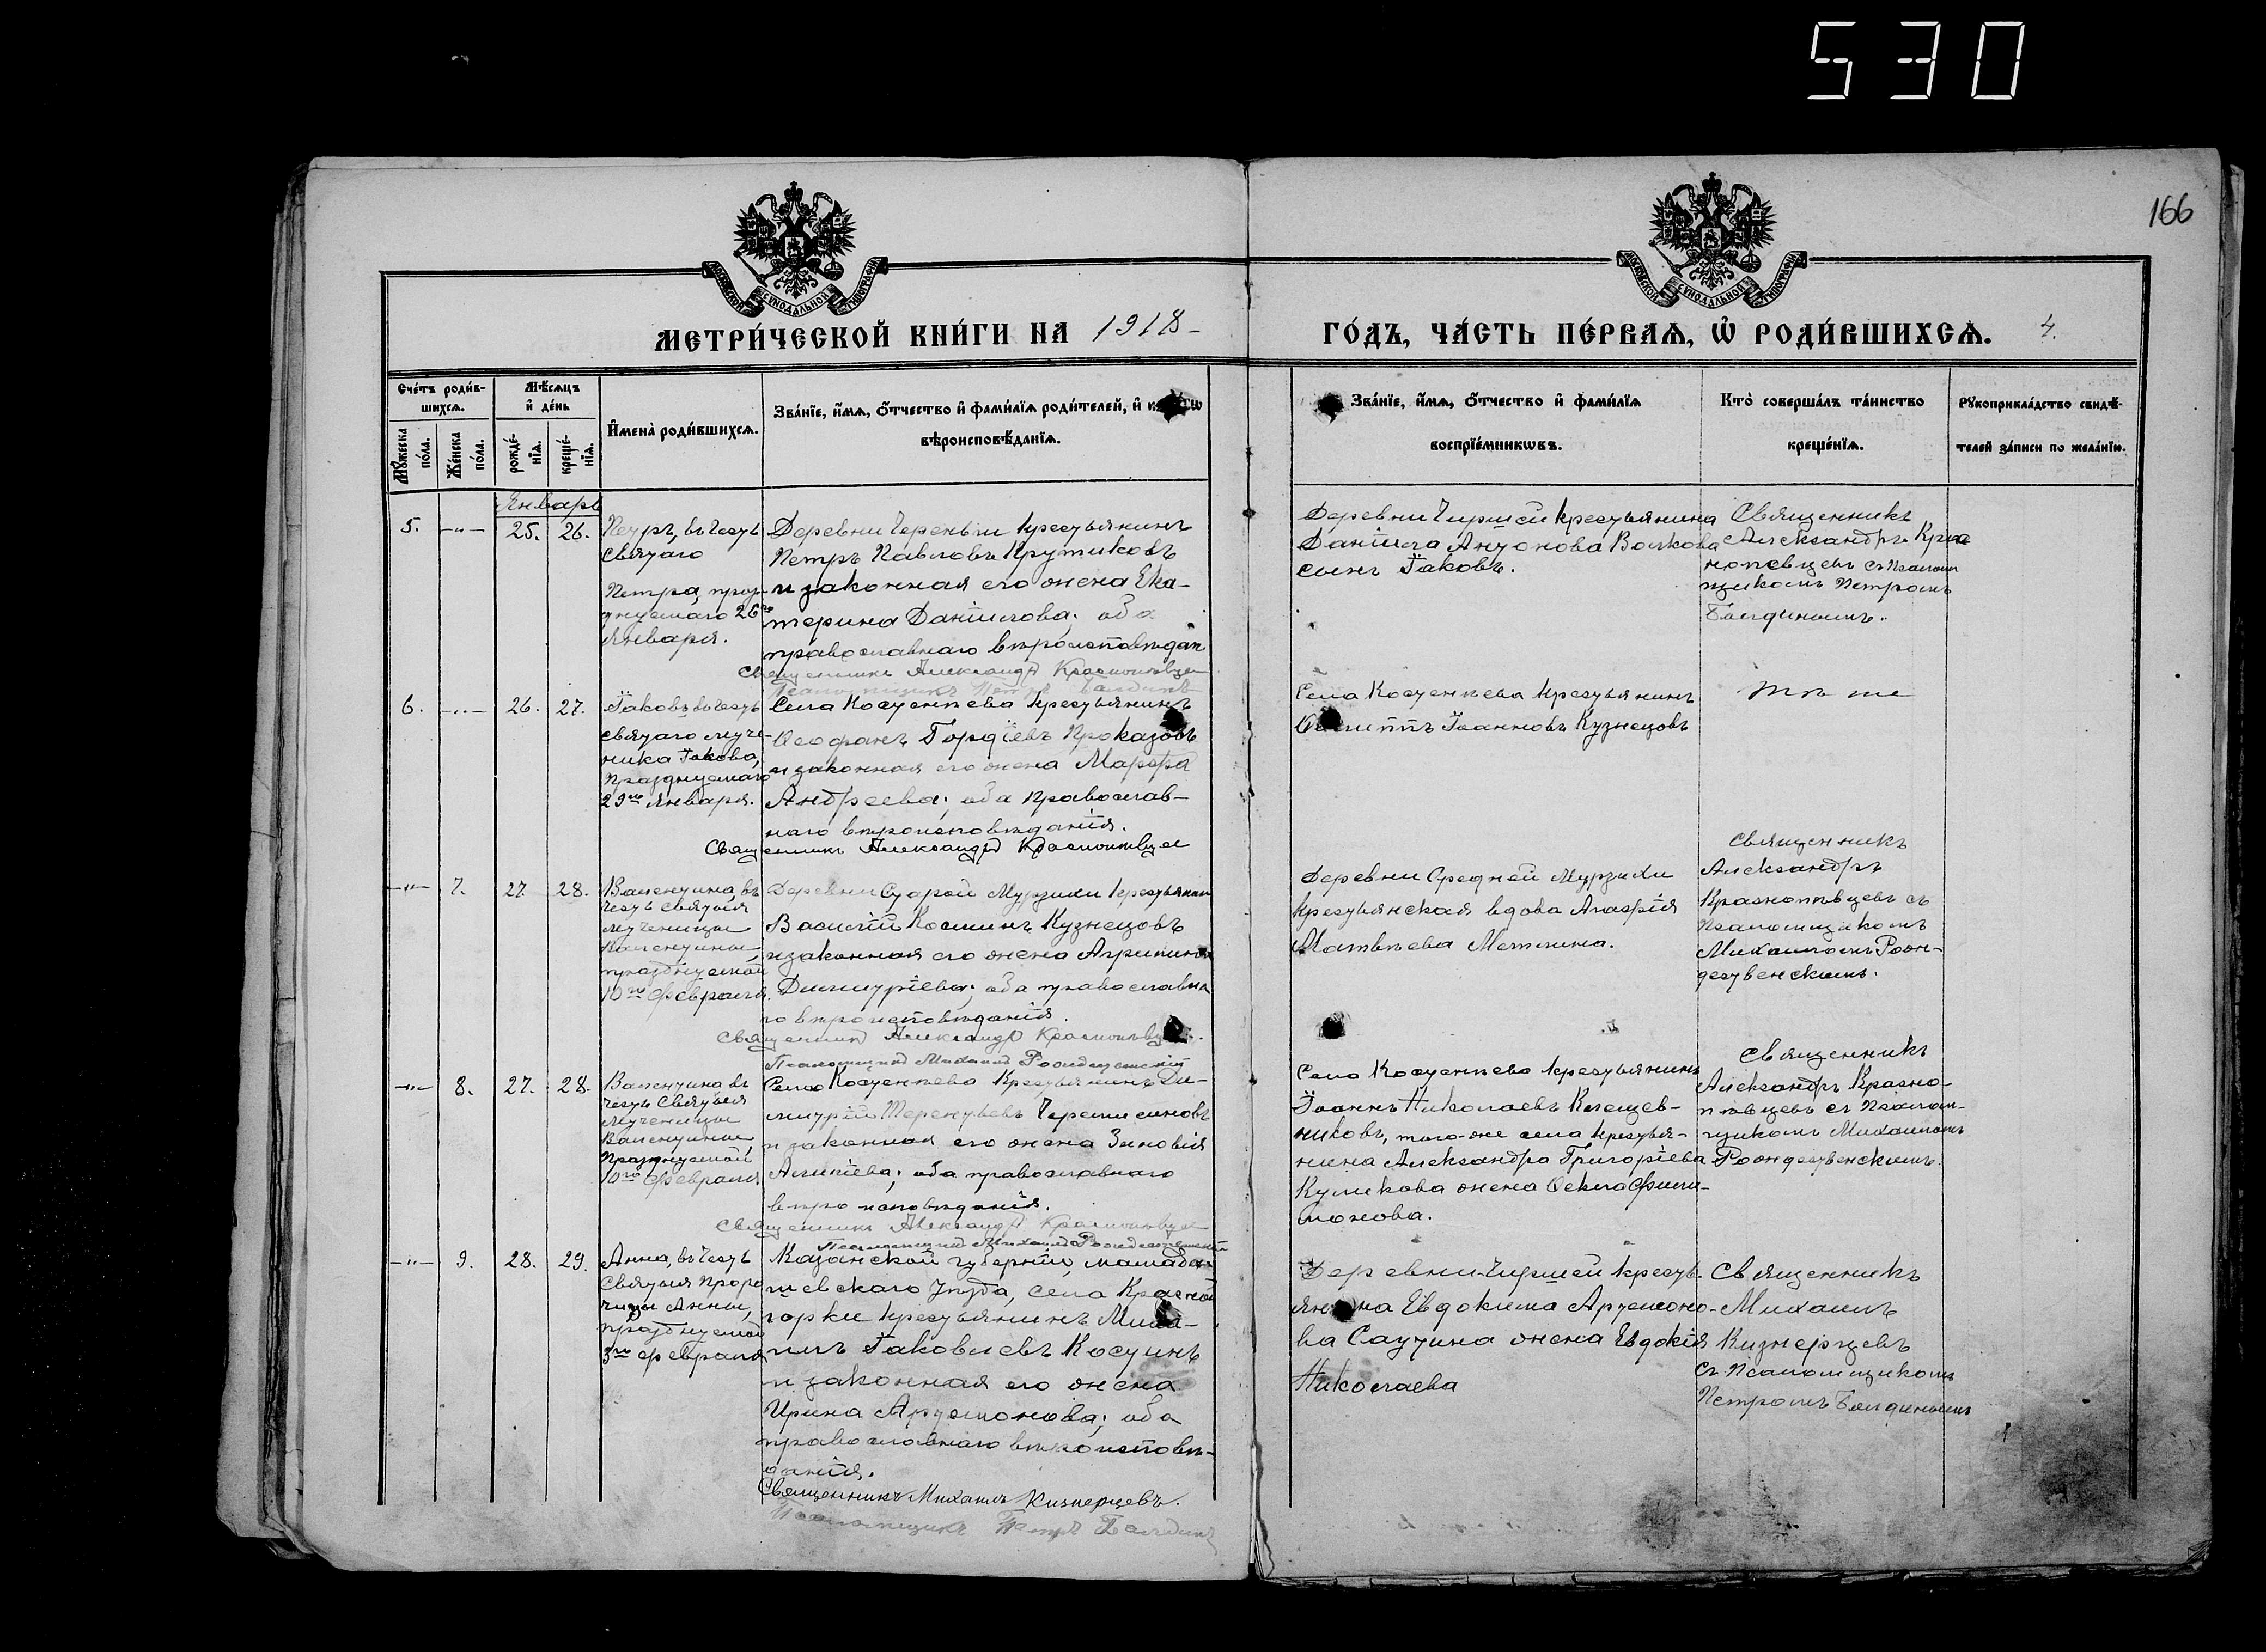 530
166
МОСКОВСКОЙ СѴНОДАЛЬНОЙ ТИПОГРАФІИ
МОСКОВСКОЙ СѴНОДАЛЬНОЙ ТИПОГРАФІИ
МЕТРИ́ЧЕСКОЙ КНИ́ГИ НА 1918
ГО́ДЪ, ЧА́СТЬ ПЕ́РВАѦ, Ѡ҆ РОДИ́ВШИХСѦ. 4.
Сче́тъ роди́в-
шихсѧ.
Мꙋжеска по́ла.
Же́нска по́ла.
Мѣ́сѧцъ
и҆ де́нь
рожде́-
нїѧ.
креще́-
нїѧ.
И҆мена̀ роди́вшихсѧ.
Зва́нїе, и҆́мѧ, ѻ҆́тчество и҆ фами́лїѧ роди́телей, и҆
вѣроисповѣ́данїѧ.
Зва́нїе, и҆́мѧ, ѻ҆́тчество и҆ фами́лїѧ
воспрїе́мникѡвъ.
Кто̀ соверша́лъ та́инство
креще́нїѧ.
Рꙋкоприкла́дство свидѣ́-
телей за́писи по жела́нїю.
Январь
5. -"- 25. 26.
Петръ, въ честь
святаго
Петра, празд-
днуемаго 26го
Января.
Деревни Черемыш крестьянинъ
Петръ Павловъ Крутиковъ
и законная его жена Ека-
терина Даніилова; оба
православнаго вѣроисповѣдан
Священникъ Александръ Краснопѣвцев
Псаломщикъ Петръ Балдинъ
Деревни Чиршей крестьянина
Даніила Антонова Волкова
сынъ Іаковъ.
Священникъ
Александръ Крас
нопѣвцевъ съ Псалом
щикомъ Петромъ
Балдинымъ.
6. -"- 26. 27.
Іаковъ въ честь
святаго муче-
ника Іакова,
празднуемаго
29го Января.
Села Косяпѣева крестьянинъ
Ѳеофанъ Гордіевъ Проказовъ
и законная его жена Марфа
Андреева; оба православ-
наго вѣроисповѣданія.
Священникъ Александръ Краснопѣвцев
Іоанновъ Кузнецовъ
тѣ же
-"- 7. 27 28.
Валентина, въ
честь святыя
мученицы
Валентины,
празднуемой
10го февраля.
Деревни Старой Мурзихи крестьянин
Василій Косминъ Кузнецовъ
и законная его жена Агрипина
Димитріева; оба православна
го вѣроисповѣданія.
Священникъ Александръ Краснопѣвцев.
Псаломщикъ Михаилъ Рождественскій
Деревни Средней Мурзихи
крестьянская вдова Агафія
Матвѣева Метлина.
Священникъ
Александръ
Краснопѣвцевъ съ
Псаломщикомъ
Михаиломъ Рож-
дественскимъ.
-"- 8. 27. 28.
Валентина въ
честь Святыя
мученицы
Валентины,
празднуемой
10го февраля
крестьянинъ Ди-
митрій Терентьевъ Черемисиновъ
и законная его жена Зиновія
Алипіева; оба православнаго
вѣроисповѣданія.
Священникъ Александръ Краснопѣвцев
Псаломщикъ Михаилъ Рождественскій
крестьянинъ
Іоаннъ Николаевъ Клещев-
никовъ, того-же села крестья-
нина Александра Григоріева
Куликова жена Ѳекла Фили-
монова.
Священникъ
Александръ Красно-
пѣвцевъ съ Псалом-
щикомъ Михаиломъ
Рождественскимъ.
-"- 9. 28. 29.
Анна, въ честь
Святыя Проро
чицы Анны,
празднуемой
3го февраля
Казанской губерніи, мамады-
шевскаго уѣзда, села Красной
горки крестьянинъ Миха-
илъ Іаковлевъ Косунъ
и законная его жена
Ирина Артемонова; оба
православнаго вѣроисповѣ-
данія.
Священникъ Михаилъ Кизнерцевъ.
Псаломщикъ Петръ Балдинъ
Деревни Чиршей кресть-
янина Евдокима Артемоно-
ва Саутина жена Евдокія
Николаева
Священникъ
Михаилъ
Кизнерцевъ
съ Псаломщикомъ
Петромъ Балдинымъ